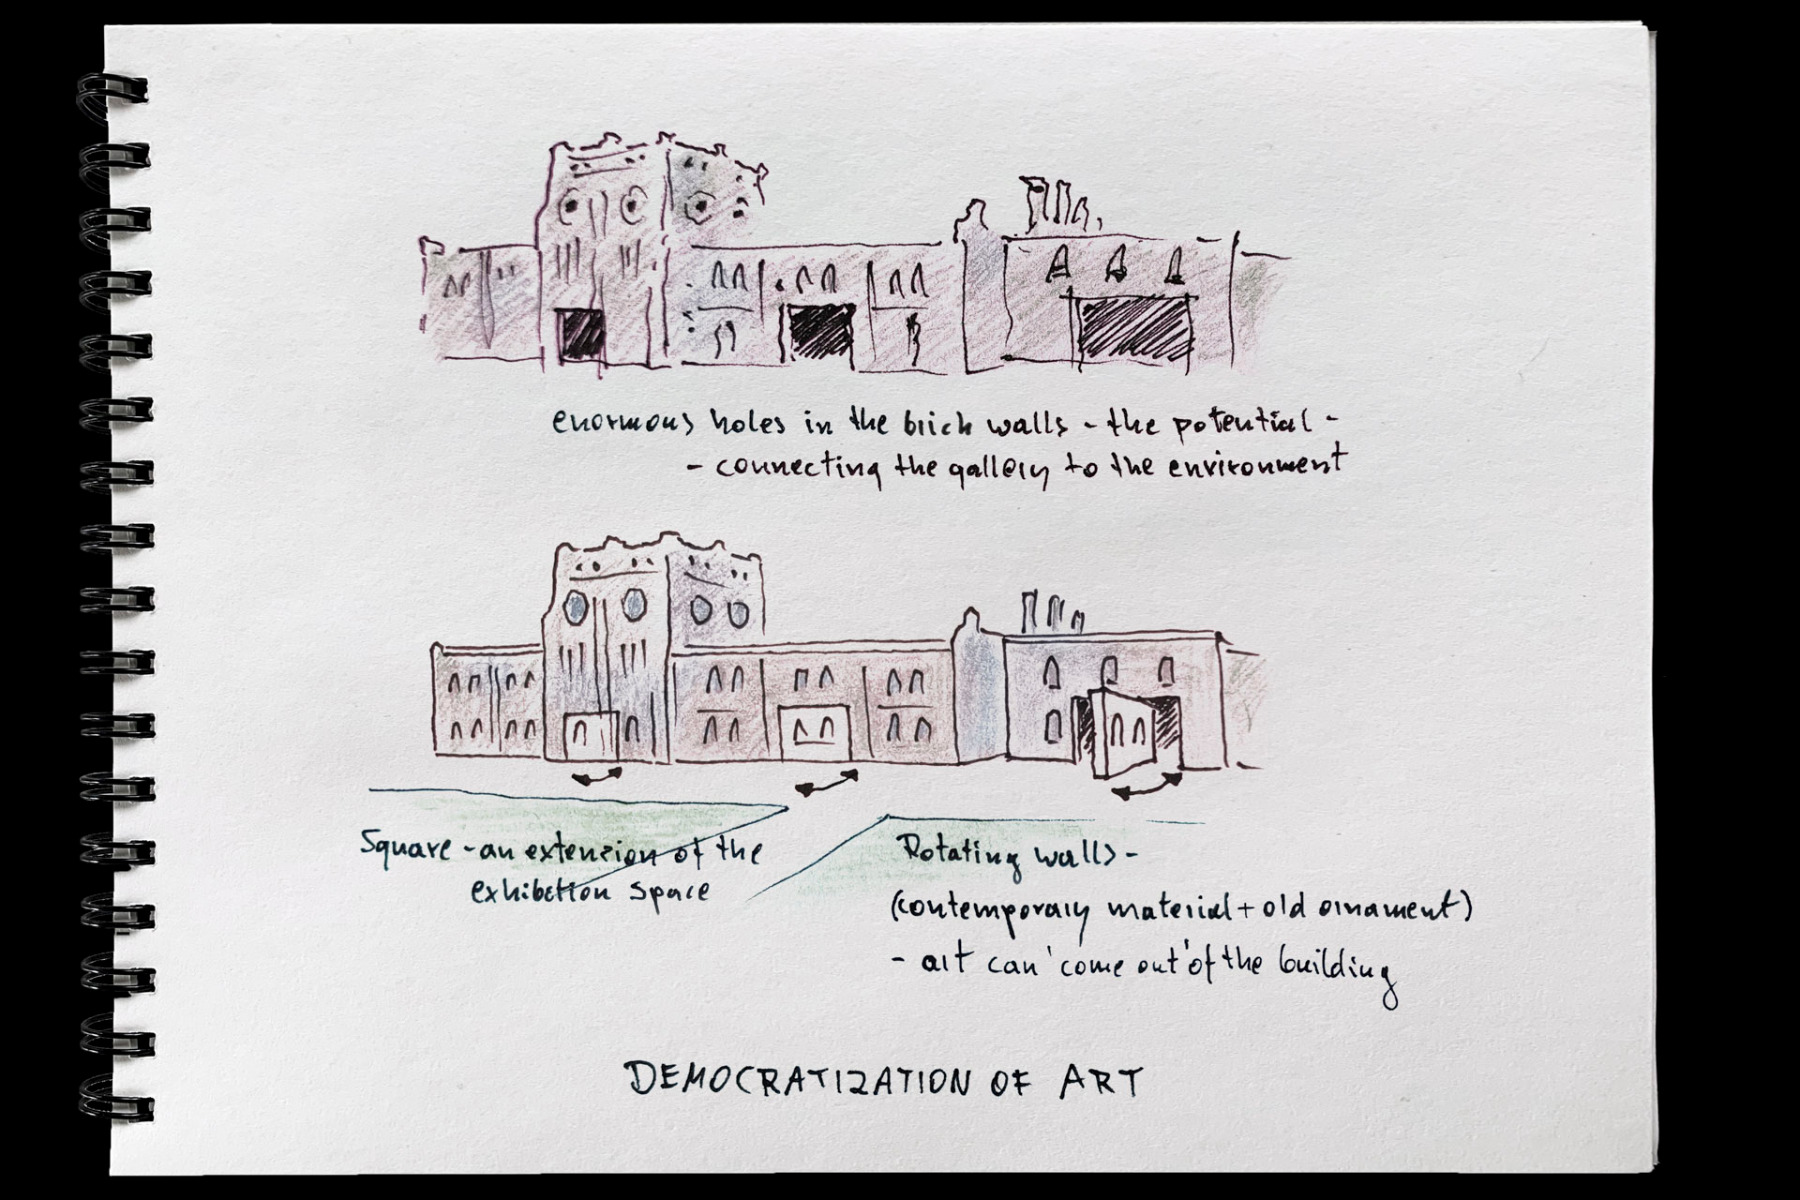 enormous holes in the brick walls - the potential -
- connecting the gallery to the environment
Square - an extension of the
exhibition space
Rotating walls -
(contemporary material + old ornament)
- art can 'come out' of the building
DEMOCRATIZATION OF ART